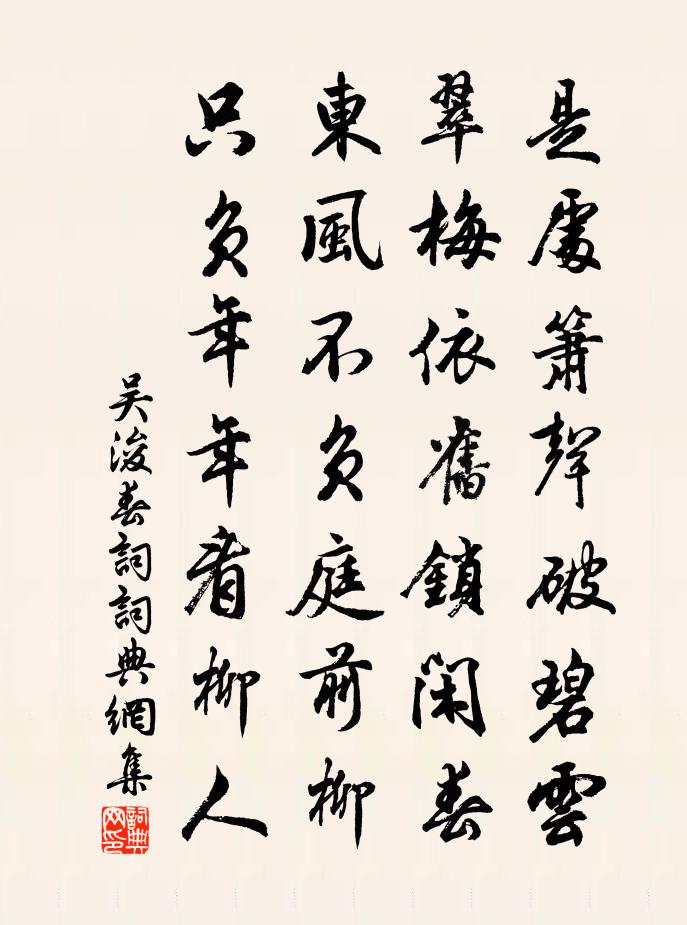 是處簫聲破碧雲
翠梅依舊鎖閑春
東風不負庭前柳
只負年年看柳人
吳浚春詞詞典網集
詞典
网印